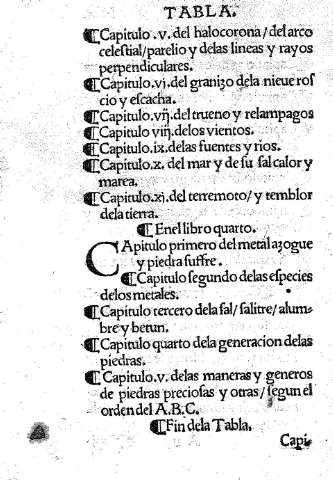 TABLA.
¶Capitulo .v. del halocorona/ del arco
celestial/parelio y delas lineas y rayos
perpendiculares.
¶Capitulo.vj.del granizo dela nieue ros
cio y escacha.
¶Capitulo.vij.del trueno y relampagos
¶Capitulo viij.delos vientos.
¶Capitulo.ix.delas fuentes y rios.
¶Capitulo.x. del mar y de su sal calor y
marea.
¶Capitulo.xj.del terremoto/ y temblor
dela tierra.
¶Enel libro quarto.
CApitulo primero del metal azogue
y piedra suffre.
¶Capitulo segundo delas especies
delos metales.
¶Capitulo tercero dela sal/ salitre/ alum-
bre y betun.
¶Capitulo quarto dela generacion delas
piedras.
¶Capitulo.v. delas maneras y generos
de piedras preciosas y otras/ segun el
orden del A.B.C.
¶Fin dela Tabla.
Capi-